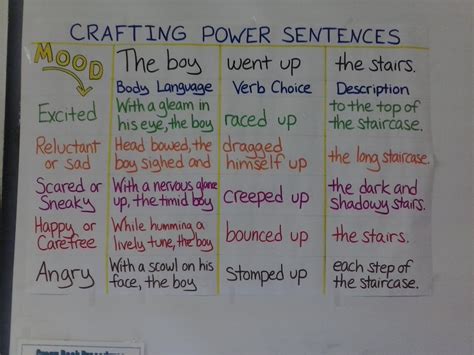 CRAFTING POWER SENTENCES
MOOD
The boy went up the stairs.
Body Language Verb Choice Description
Excited
With a gleam in
his eye, the boy
raced up
to the top of
the staircase.
Reluctant
or sad
Head bowed, the
boy sighed and
dragged
himself up
the long staircase.
Scared or
Sneaky
With a nervous glance
up, the timid boy
creeped up
the dark and
shadowy stairs.
Happy or
Carefree
While humming a
lively tune, the boy
bounced up
the stairs.
Angry
With a scowl on his
face, the boy
Stomped up
each step of
the staircase.